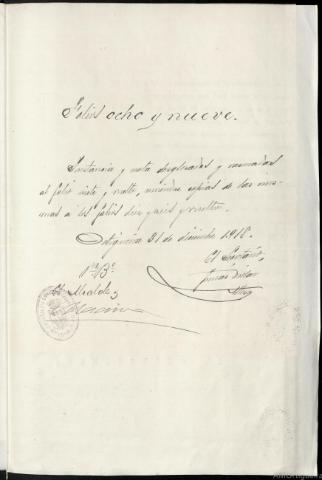 Folios ocho y nueve.
Instancia y nota desglosadas y unidas
al folio siete y vuelto, uniéndose copias de las mis-
mas a los folios diez y seis y vuelto.
Ortigueira 31 de diciembre 1918.
El Secretario,
Vº Bº
El Alcalde,